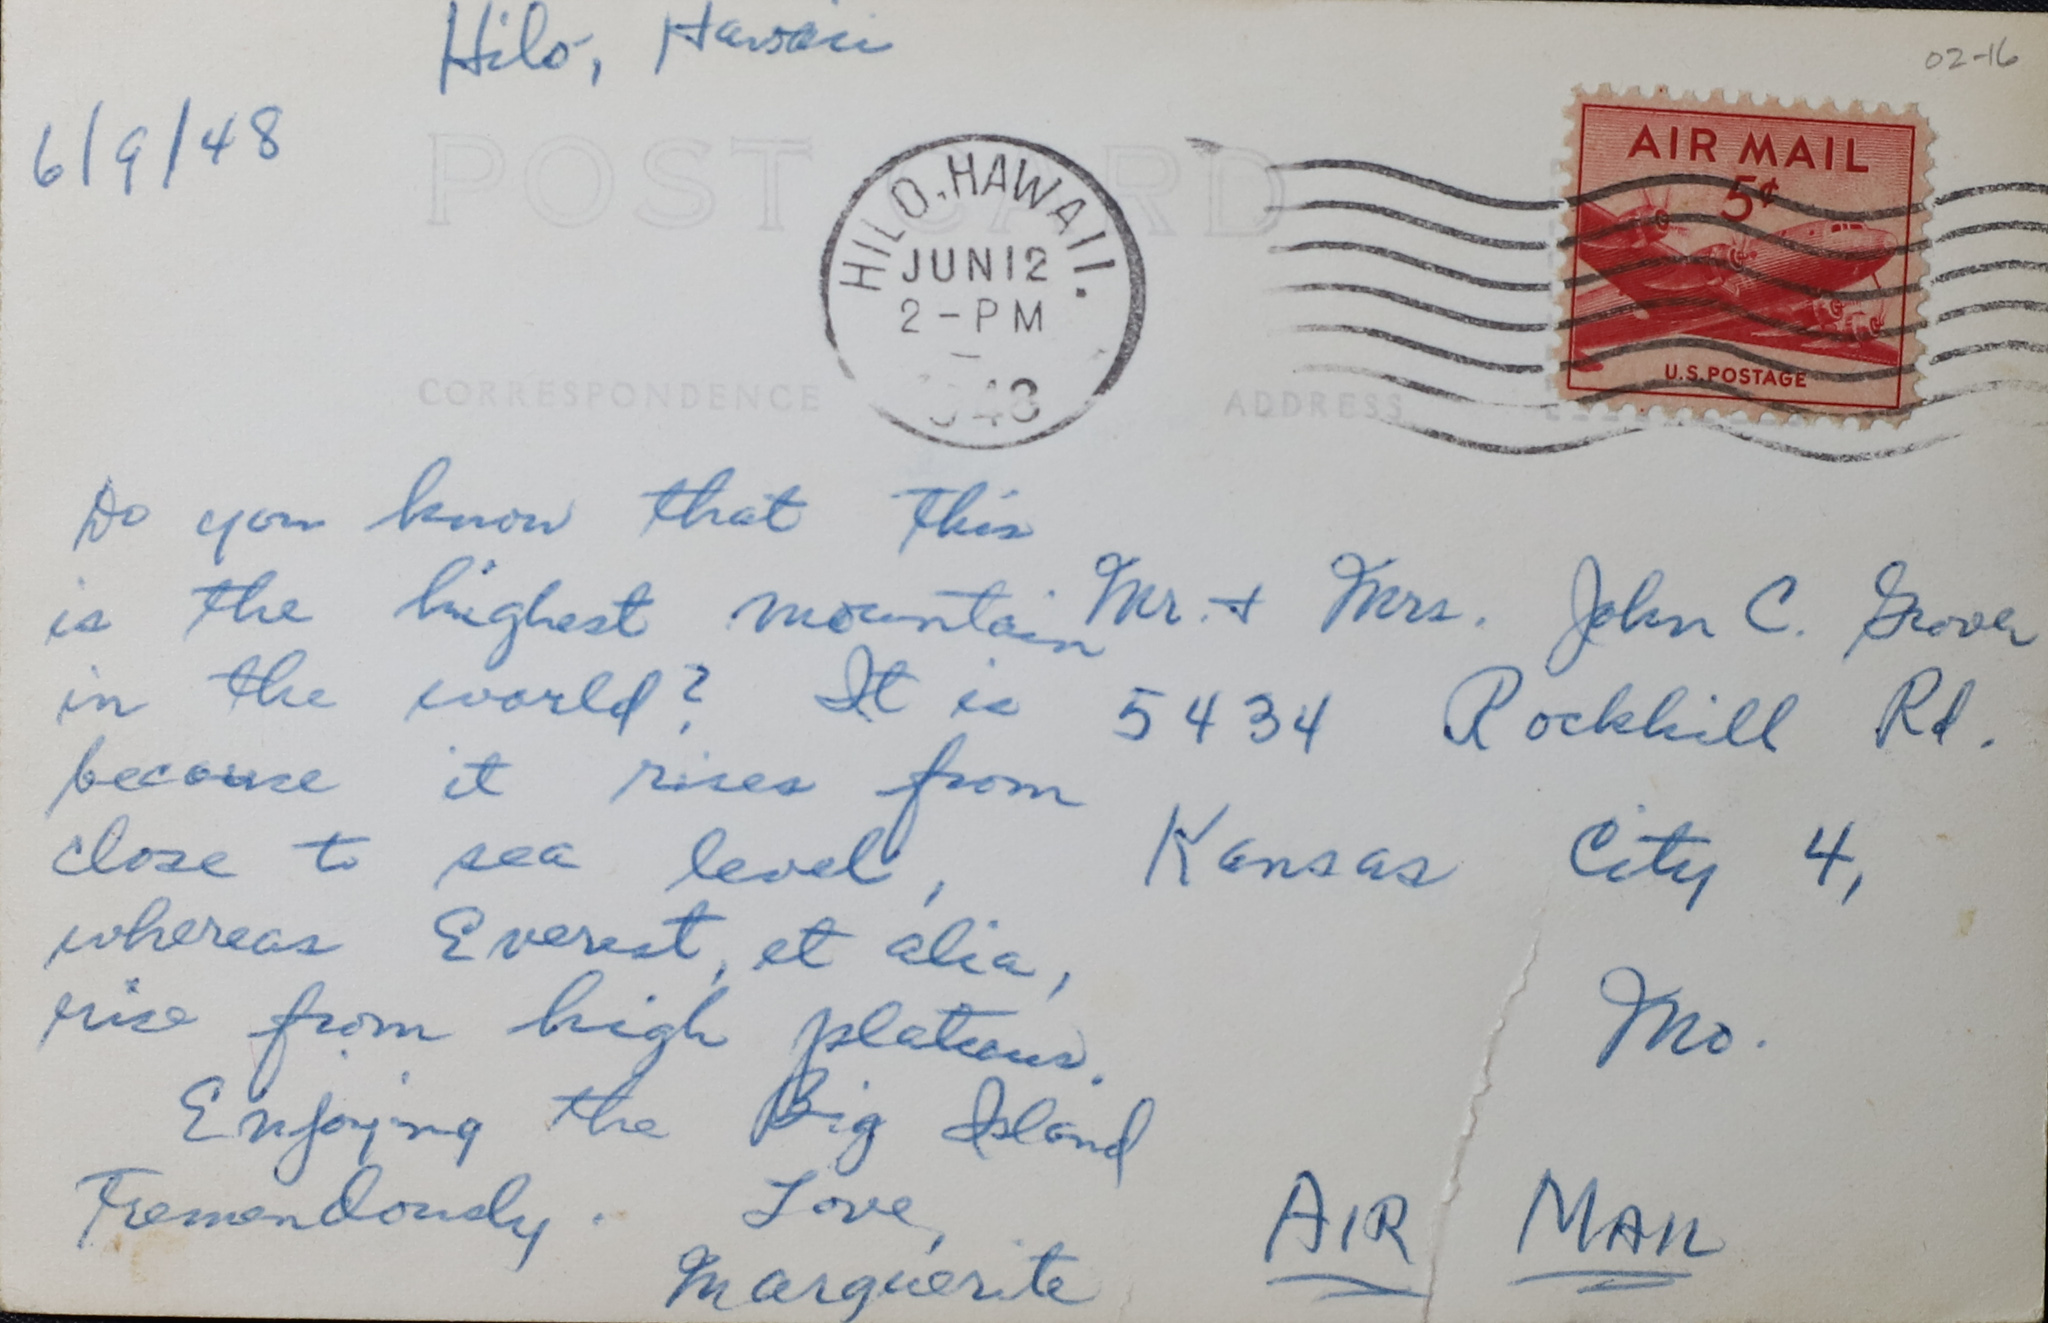 Hilo, Hawaii
02-16
6/9/48
POST CARD
HILO, HAWAII.
JUN 12
2-PM
1948
AIR MAIL
5¢
U.S. POSTAGE
CORRESPONDENCE
ADDRESS
Do you know that this
is the highest mountain
in the world? It is
because it rises from
close to sea level,
whereas Everest, et alia,
rise from high plateaus.
Enjoying the Big Island
Tremendously. Love,
Marguerite
Mr. + Mrs. John C. Grover
5434 Rockhill Rd.
Kansas City 4,
Mo.
AIR MAIL